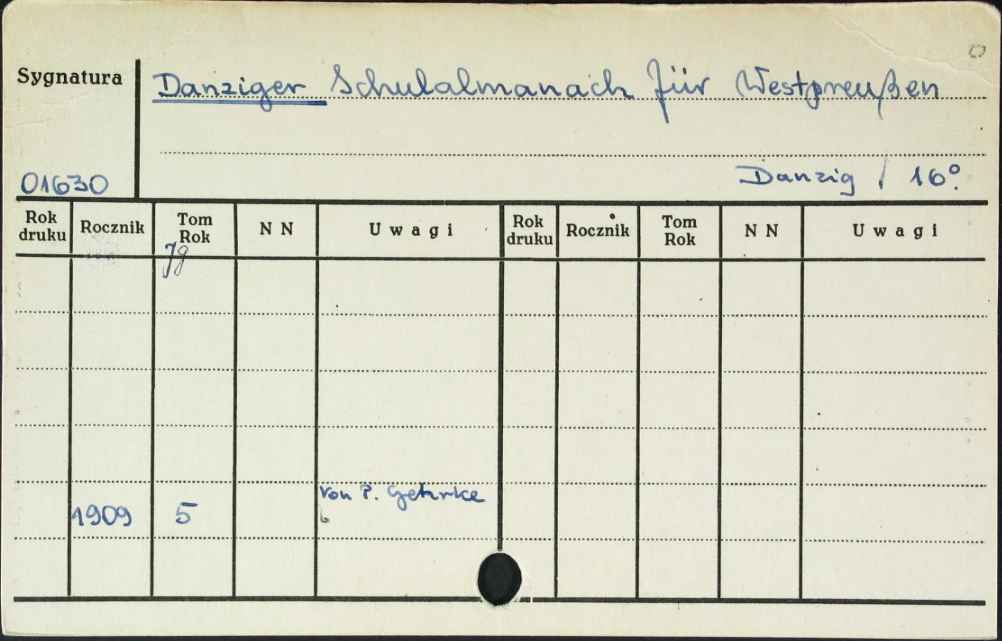 Sygnatura
Danziger Schulalmanach für Westpreußen
01630
Danzig, 16°.
Rok druku Rocznik Tom Rok N N Uwagi Rok druku Rocznik Tom Rok N N Uwagi
Jg
von P. Gehrke
1909 5